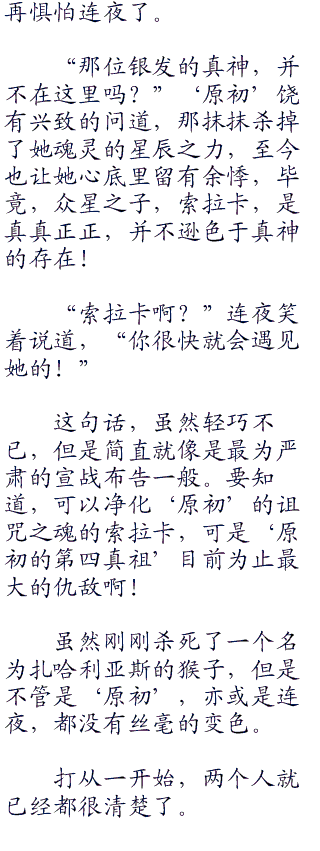 再惧怕连夜了。
“那位银发的真神，并
不在这里吗？”‘原初’饶
有兴致的问道，那抹抹杀掉
了她魂灵的星辰之力，至今
也让她心底里留有余悸，毕
竟，众星之子，索拉卡，是
真真正正，并不逊色于真神
的存在！
“索拉卡啊？”连夜笑
着说道，“你很快就会遇见
她的！”
这句话，虽然轻巧不
已，但是简直就像是最为严
肃的宣战布告一般。要知
道，可以净化‘原初’的诅
咒之魂的索拉卡，可是‘原
初的第四真祖’目前为止最
大的仇敌啊！
虽然刚刚杀死了一个名
为扎哈利亚斯的猴子，但是
不管是‘原初’，亦或是连
夜，都没有丝毫的变色。
打从一开始，两个人就
已经都很清楚了。